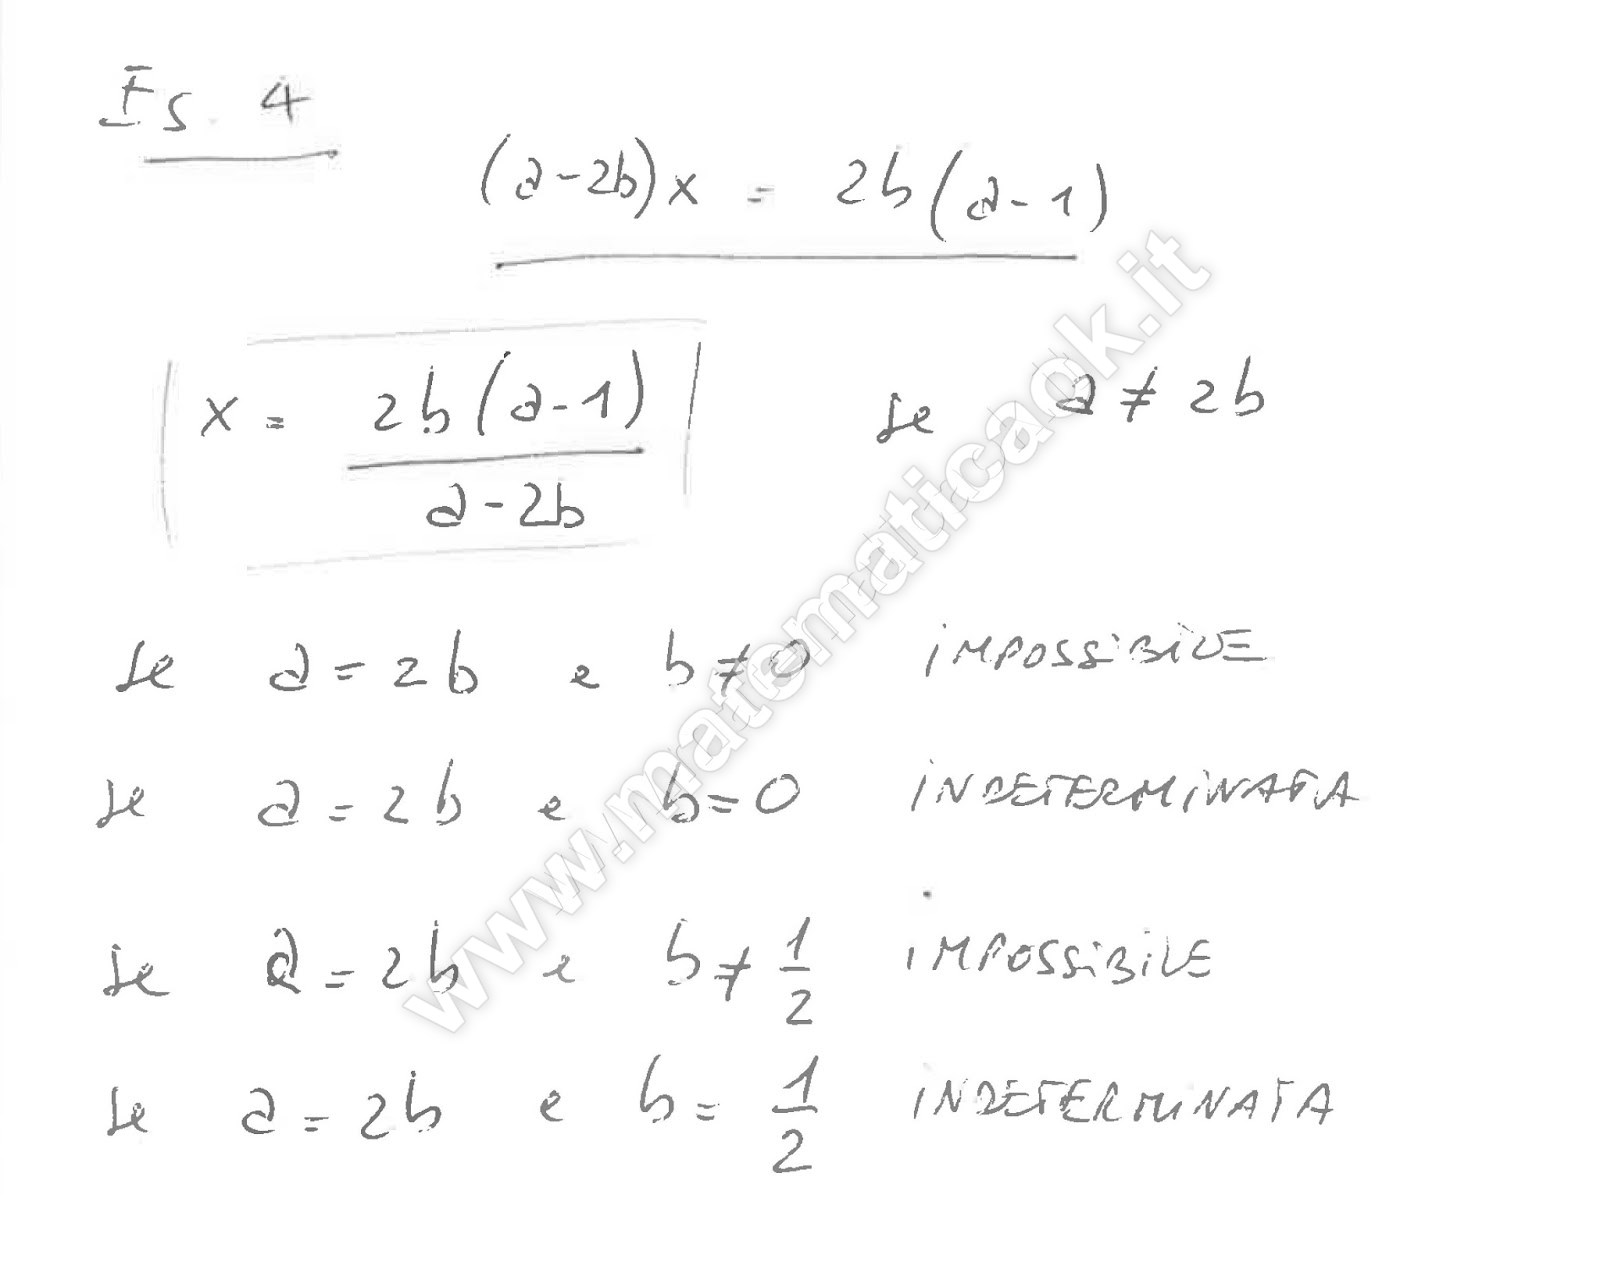 Es. 4
(a-2b)x = 2b(a-1)
x = 2b(a-1) / a-2b se a ≠ 2b
se a = 2b e b ≠ 0 IMPOSSIBILE
se a = 2b e b = 0 INDETERMINATA
se a = 2b e b ≠ 1/2 IMPOSSIBILE
se a = 2b e b = 1/2 INDETERMINATA
www.matematicaok.it